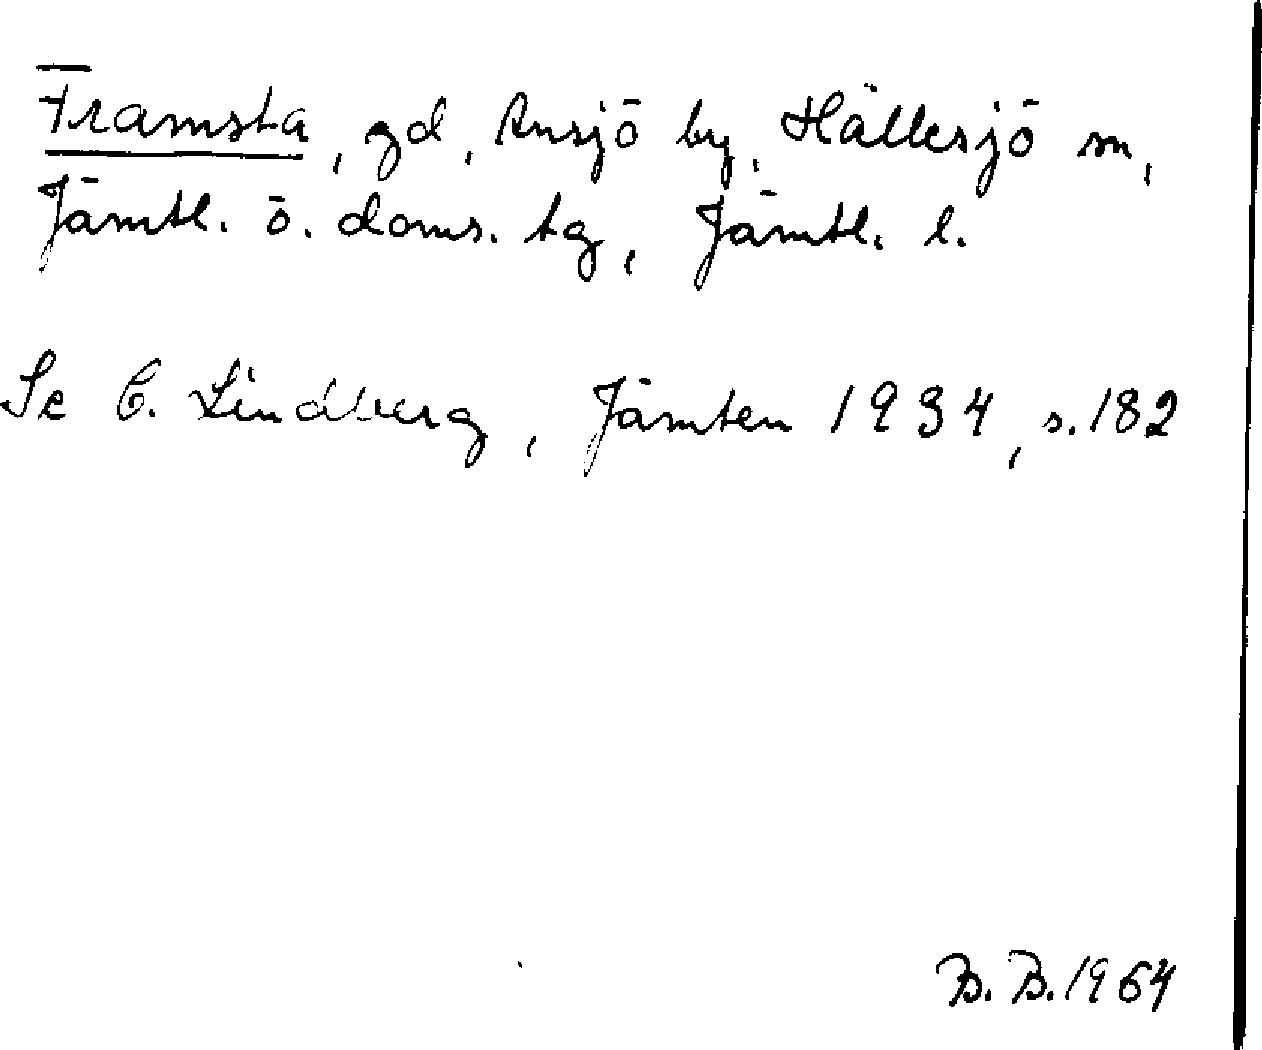 Framsta, gd, Ansjö by, Hällesjö sn,
Jämtl. ö. doms. tg, Jämtl. l.
Se C. Lindberg, Jämten 1934, s. 182
B. B. 1964